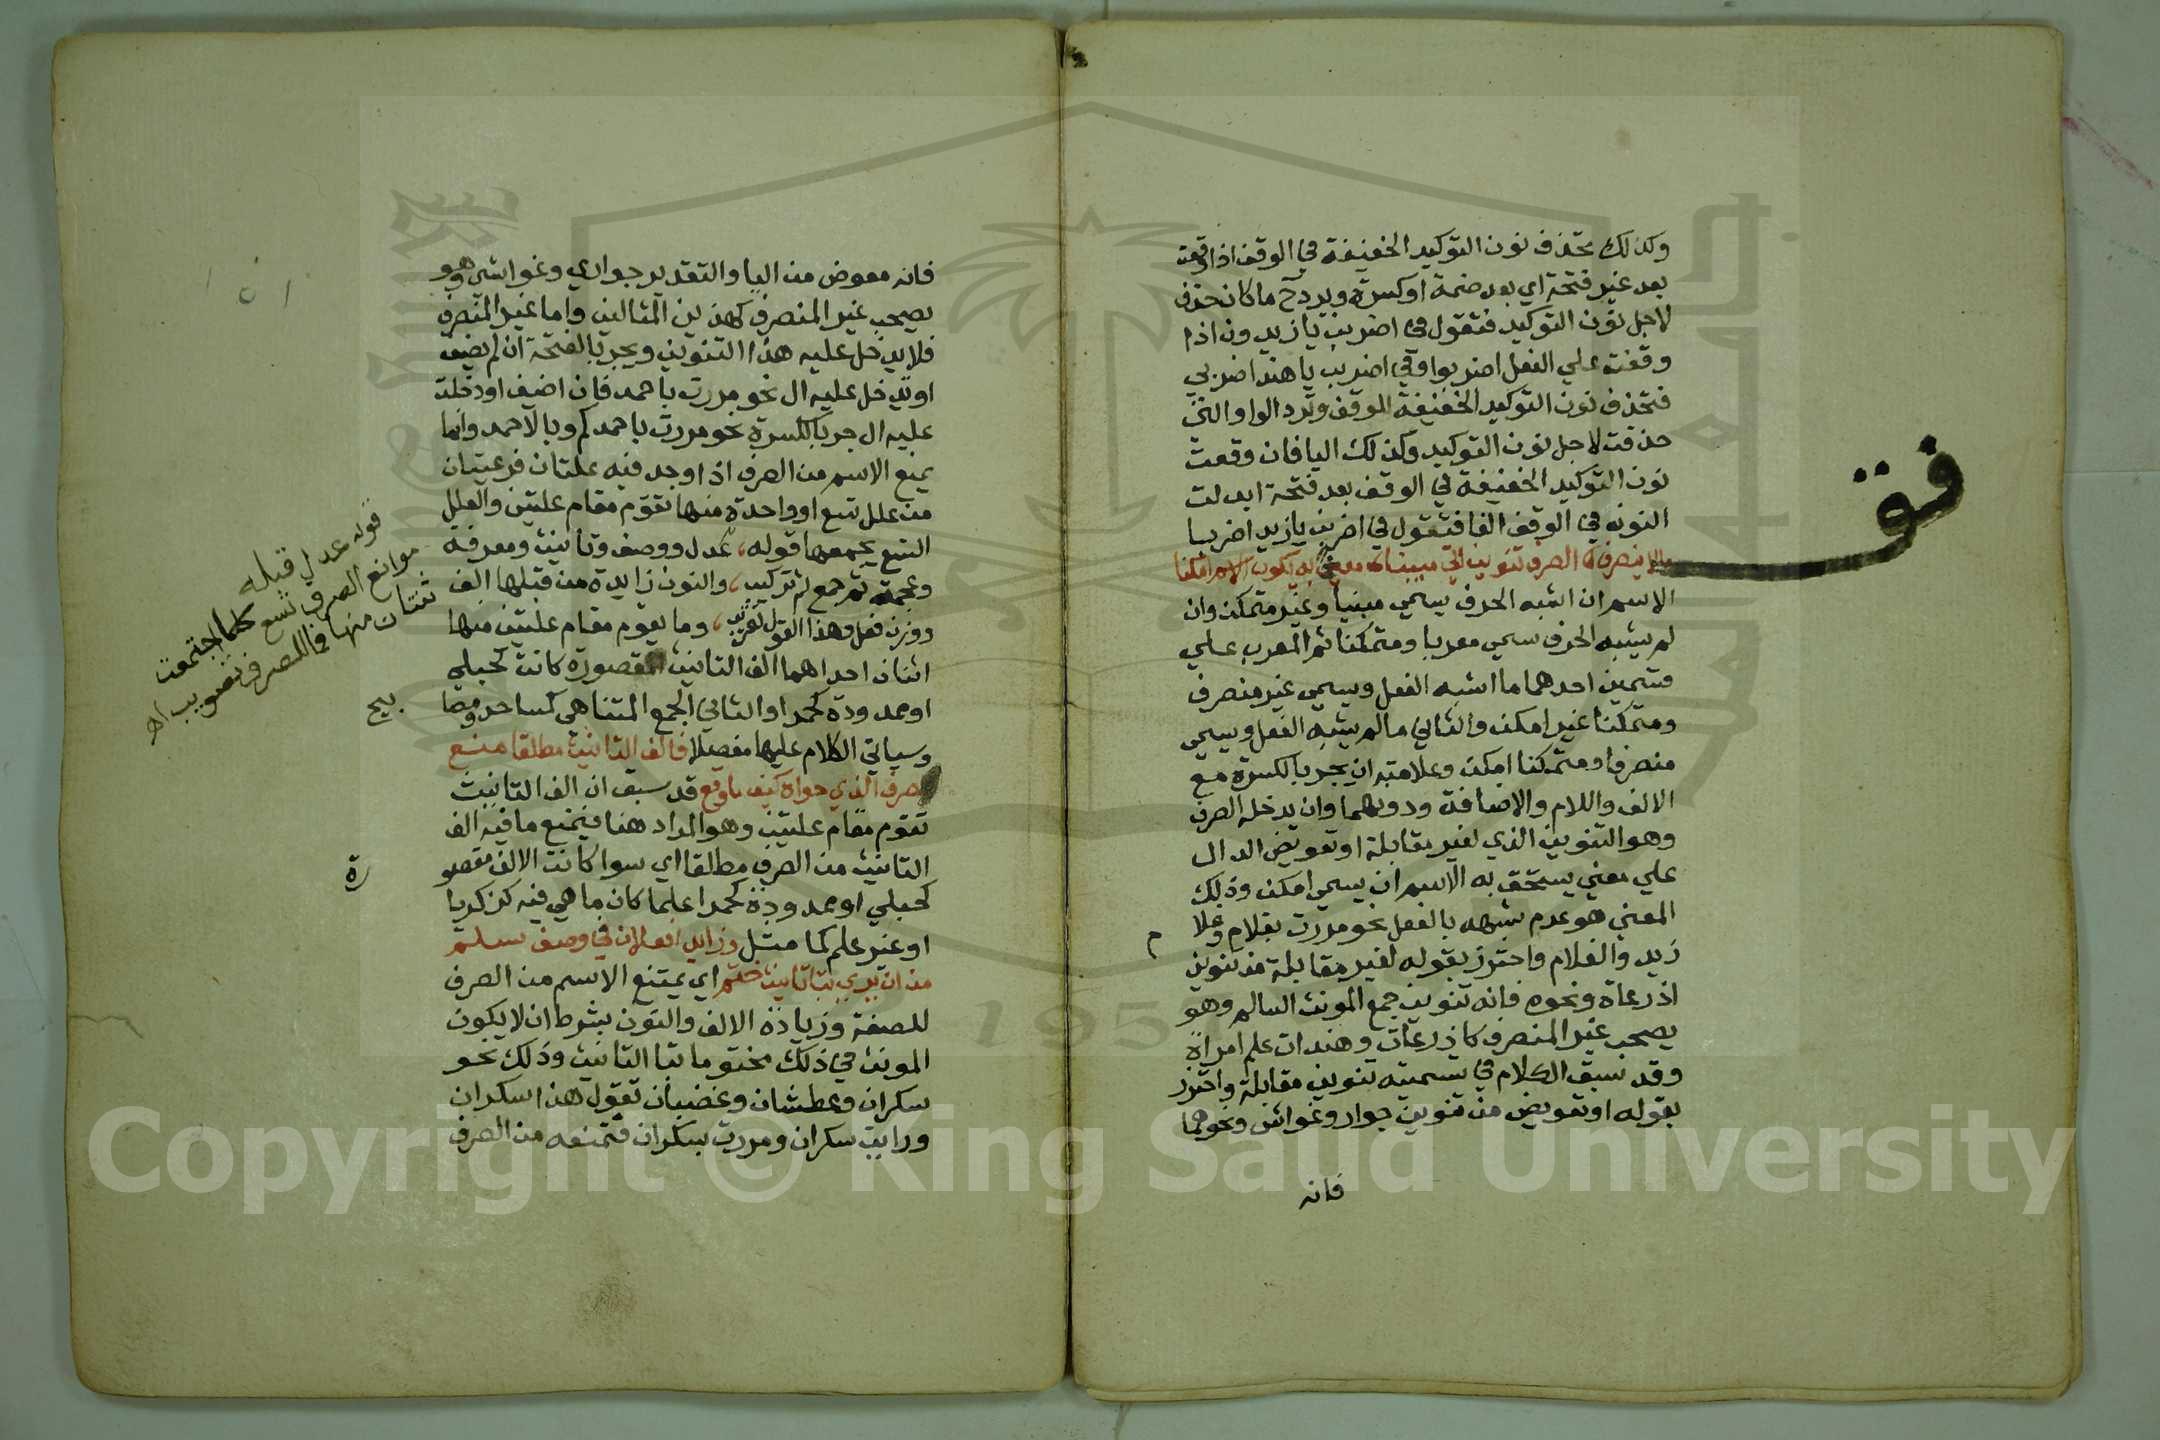 وكذلك تحذف نون التوكيد الخفيفة في الوقف اذا وقعت
بعد غير فتحة اي بعد ضمة او كسرة ويرد ح ما كان حذف
لاجل نون التوكيد فتقول في اضربن يا زيدون اذا
وقفت علي الفعل اضربوا وفي اضربن يا هند اضربي
فتحذف نون التوكيد الخفيفة للوقف وترد الواو التي
حذفت لاجل نون التوكيد وكذلك اليا فان وقعت
نون التوكيد الخفيفة في الوقف بعد فتحة ابدلت
النون في الوقف الفا فتقول في اضربن يا زيد اضربا
ما لا ينصرف الصرف تنوين اتي مبينا معني به يكون الاسم امكنا
الاسم ان اشبه الحرف يسمي مبنيا وغير متمكن وان
لم يشبه الحرف سمي معربا ومتمكنا ثم المعرب علي
قسمين احدهما ما اشبه الفعل ويسمي غير منصرف
ومتمكنا غير امكن والثاني ما لم يشبه الفعل ويسمي
منصرفا ومتمكنا امكن وعلامته ان يجر بالكسرة مع
الالف واللام والاضافة ودونهما وان يدخله الصرف
وهو التنوين الذي لغير مقابلة او تعويض الدال
علي معني يستحق به الاسم ان يسمي امكن وذلك
المعني هو عدم شبهه بالفعل نحو مررت بغلام وغلا
م
زيد والغلام واحترز بقوله لغير مقابلة من تنوين
اذرعاة ونحوه فانه تنوين جمع المونث السالم وهو
يصحب غير المنصرف كاذرعات وهندات علم امراة
وقد سبق الكلام في تسميته تنوين مقابلة واحترز
بقوله او تعويض من تنوين جوار وغواش ونحوهما
فانه
فق
فانه معوض من اليا والتقدير جواري وغواشي وهو
يصحب غير المنصرف كهذين المثالين واما غير المنصرف
فلا يدخل عليه هذا التنوين ويجر بالفتحة ان لم يضف
او تدخل عليه ال نحو مررت باحمد فان اضيف او دخلت
عليه ال جر بالكسرة نحو مررت باحمدكم وبالاحمد وانما
يمنع الاسم من الصرف اذا وجد فيه علتان فرعيتان
من علل تسع او واحدة منها تقوم مقام علتين والعلل
التسع يجمعها قوله عدل ووصف وتانيث ومعرفة
وعجمة ثم جمع ثم تركيب والنون زايدة من قبلها الف
ووزن فعل وهذا القول تقريب وما يقوم مقام علتين منها
اثنان احداهما الف التانيث المقصورة كانت كحبلي
او ممدودة كحمرا والثاني الجمع المتناهي كمساجد ومصا
بيح
وسياتي الكلام عليها مفصلا فالف التانيث مطلقا منع
صرف الذي حواه كيف ما وقع قد سبق ان الف التانيث
تقوم مقام علتين وهو المراد هنا فيمنع ما فيه الف
التانيث من الصرف مطلقا اي سوا كانت الالف مقصو
رة
كحبلي او ممدودة كحمرا علما كان ما هي فيه كزكريا
او غير علم كما مثل وزايدا فعلان في وصف سلم
من ان يري بتا تانيث ختم اي يمتنع الاسم من الصرف
للصفة وزيادة الالف والنون بشرط ان لا يكون
المونث في ذلك مختوما بتا التانيث وذلك نحو
سكران وعطشان وغضبان تقول هذا سكران
ورايت سكران ومررت بسكران فتمنعه من الصرف
قوله عدل قبله
موانع الصرف تسع كلما اجتمعت
ثنتان منها فما للصرف تصويب اه
Copyright © King Saud University
195